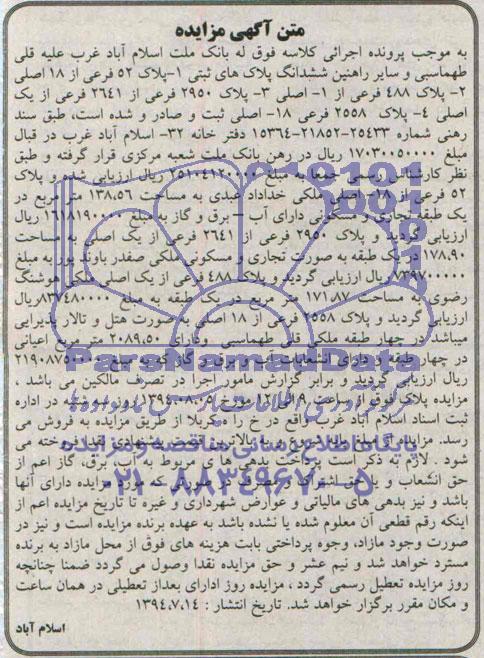 متن آگهی مزایده
به موجب پرونده اجرائی کلاسه فوق له بانک ملت اسلام آباد غرب علیه قلی
طهماسبی و سایر راهنین ششدانگ پلاک های ثبتی ۱-پلاک ۵۲ فرعی از ۱۸ اصلی
۲- پلاک ۴۸۸ فرعی از ۱- اصلی ۳- پلاک ۲۹۵۰ فرعی از ۲۶۴۱ فرعی از یک
اصلی ۴- پلاک ۲۵۵۸ فرعی ۱۸- اصلی ثبت و صادر و شده است، طبق سند
رهنی شماره ۲۵۴۳۳-۲۱۸۵۲-۱۵۳۶۴ دفتر خانه ۳۲- اسلام آباد غرب در قبال
مبلغ ۱۷۰۳۰۰۵۰۰۰۰ ریال در رهن بانک ملت شعبه مرکزی قرار گرفته و طبق
نظر کارشناس رسمی جمعا به مبلغ ۲۵۱۰۴۱۲۰۰۰۰ ریال ارزیابی شده و پلاک
۵۲ فرعی از ۱۸- اصلی ملکی خداداد عبدی به مساحت ۱۳۸،۵۶ متر مربع در
یک طبقه تجاری و مسکونی دارای آب – برق و گاز به مبلغ ۱۶۱۸۱۹۰۰۰۰ ریال
ارزیابی گردید و پلاک ۲۹۵۰ فرعی از ۲۶۴۱ فرعی از یک اصلی به مساحت
۱۷۸،۹۰ در یک طبقه به صورت تجاری و مسکونی ملکی صفدر باوند پور به مبلغ
۷۳۹۷۰۰۰۰۰ ریال ارزیابی گردید و پلاک ۴۸۸ فرعی از یک اصلی ملکی هوشنگ
رضوی به مساحت ۱۷۱،۸۷ متر مربع در یک طبقه به مبلغ ۸۳۷۴۸۰۰۰۰ ریال
ارزیابی گردید و پلاک ۲۵۵۸ فرعی از ۱۸ اصلی به صورت هتل و تالار پذیرایی
میباشد در چهار طبقه ملکی قلی طهماسبی و دارای ۲۰۸۹،۵۰ متر مربع اعیانی
در چهار طبقه و دارای انشعابات آب و برق و گاز که به مبلغ ۲۱۹۰۸۷۵۰۰۰۰
ریال ارزیابی گردید و برابر گزارش مامور اجرا در تصرف مالکین می باشد ،
مزایده پلاک فوق از ساعت ۹ الی ۱۲ مورخ ۱۳۹۴،۰۸،۰۵ روز سه شنبه در اداره
ثبت اسناد اسلام آباد غرب واقع در خ راه کربلا از طریق مزایده به فروش می
رسد. مزایده از مبلغ پایه شروع و به بالاترین قیمت پیشنهادی نقدا فروخته می
شود . لازم به ذکر است پرداخت بدهی های مربوط به آب، برق، گاز اعم از
حق انشعاب و یا حق اشتراک و مصرف در صورتی که مورد مزایده دارای آنها
باشد و نیز بدهی های مالیاتی و عوارض شهرداری و غیره تا تاریخ مزایده اعم از
اینکه رقم قطعی آن معلوم شده یا نشده باشد به عهده برنده مزایده است و نیز در
صورت وجود مازاد، وجوه پرداختی بابت هزینه های فوق از محل مازاد به برنده
مسترد خواهد شد و نیم عشر و حق مزایده نقدا وصول می گردد ضمنا چنانچه
روز مزایده تعطیل رسمی گردد ، مزایده روز ادارای بعداز تعطیلی در همان ساعت
و مکان مقرر برگزار خواهد شد. تاریخ انتشار : ۱۳۹۴،۷،۱۴
اسلام آباد
ParsNamadData
پایگاه اطلاع رسانی مناقصه و مزایده
۰۲۱-۸۸۳۴۹۶۷۰-۵